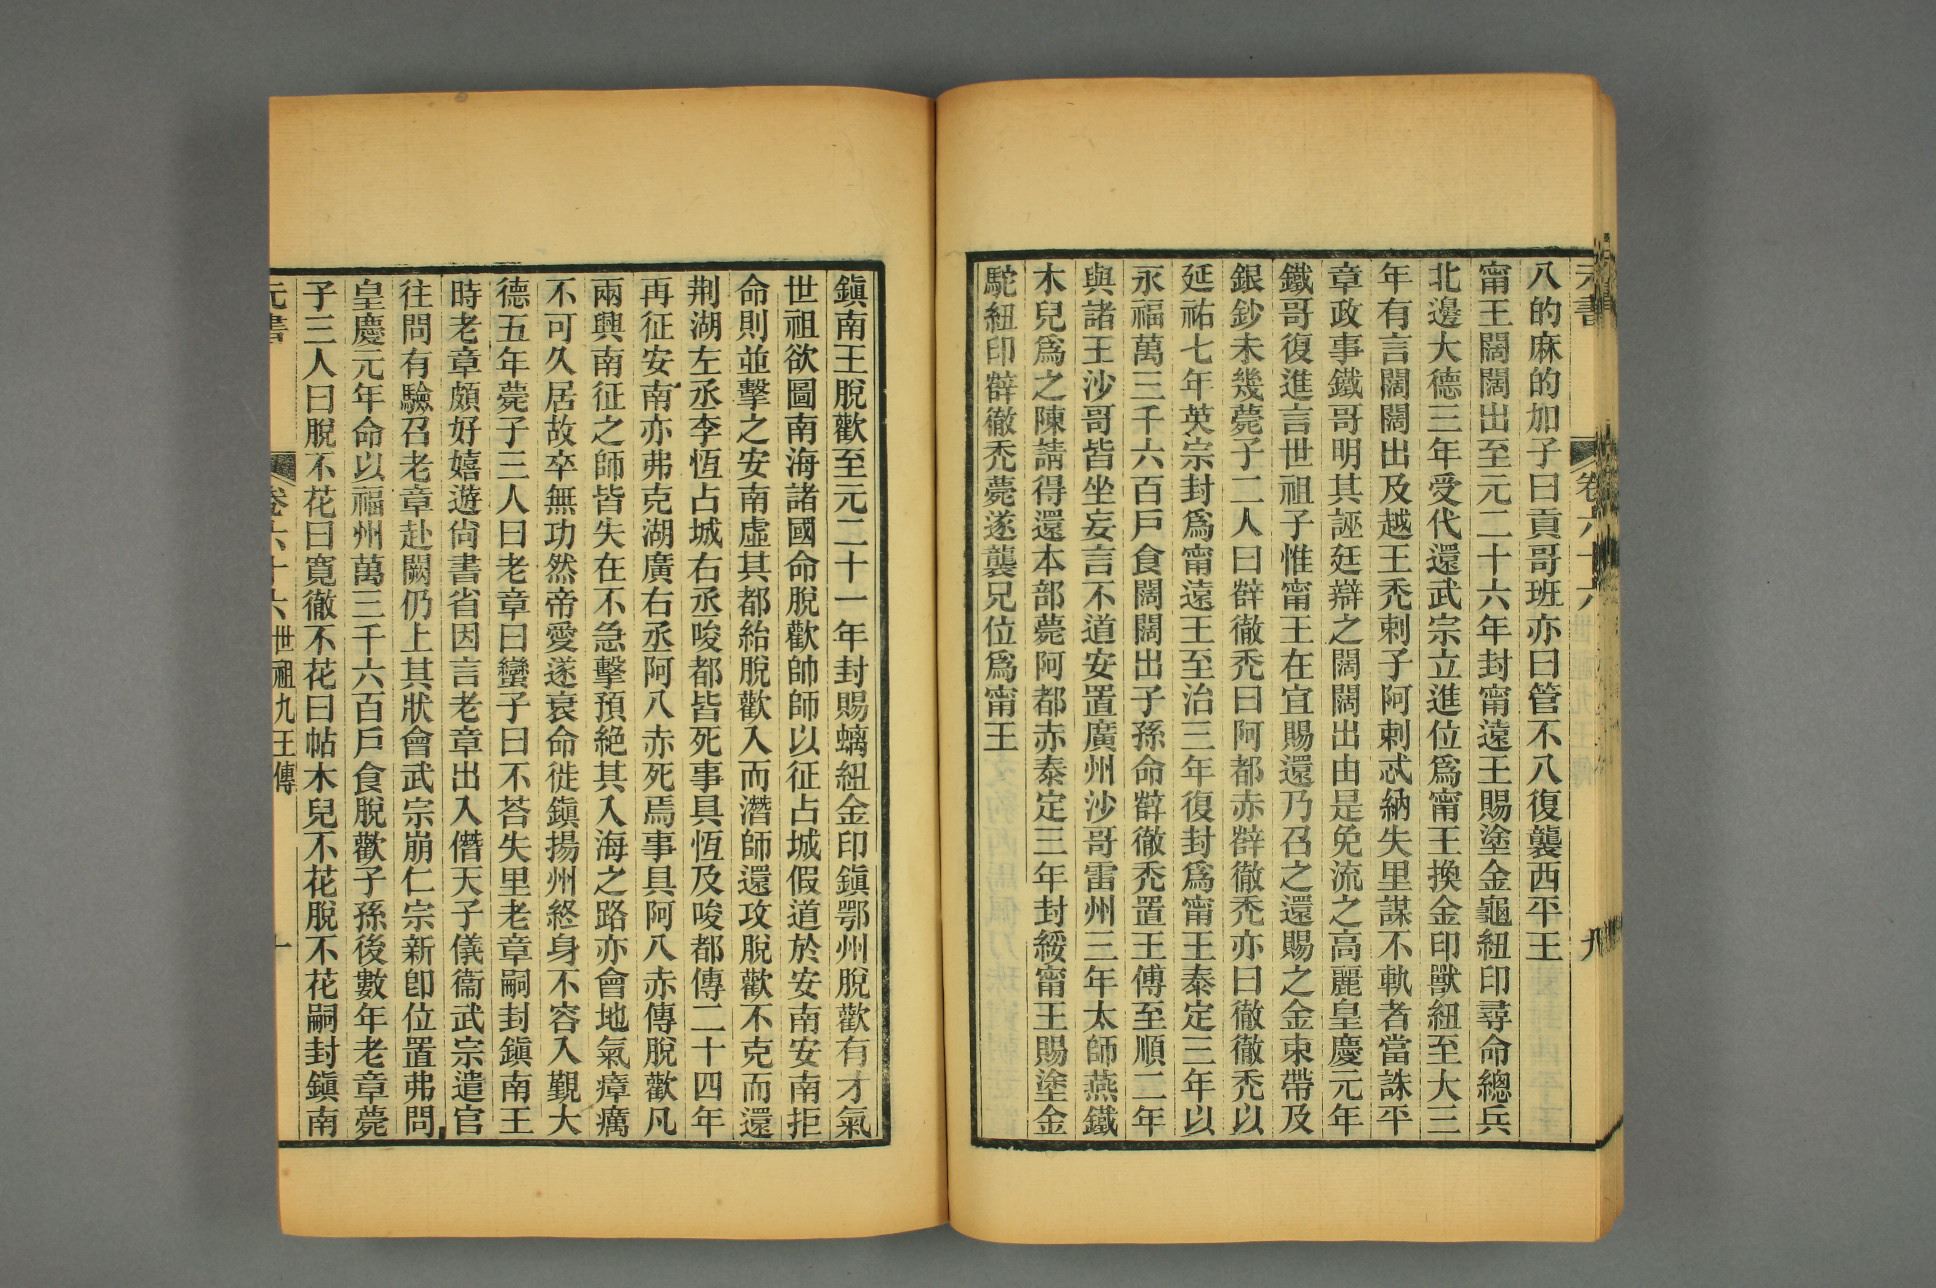 元書 卷六十六 世祖九王傳 九
八的麻的加子曰貢哥班亦曰管不八復襲西平王
甯王闊闊出至元二十六年封甯遠王賜塗金龜紐印尋命總兵
北邊大德三年受代還武宗立進位爲甯王換金印獸紐至大三
年有言闊闊出及越王禿剌子阿剌忒納失里謀不軌者當誅平
章政事鐵哥明其誣廷辯之闊闊出由是免流之高麗皇慶元年
鐵哥復進言世祖子惟甯王在宜賜還乃召之還賜之金束帶及
銀鈔未幾薨子二人曰薛徹禿曰阿都赤薛徹禿亦曰徹徹禿以
延祐七年英宗封爲甯遠王至治三年復封爲甯王泰定三年以
永福萬三千六百戶食闊闊出子孫命薛徹禿置王傅至順二年
與諸王沙哥皆坐妄言不道安置廣州沙哥雷州三年太師燕鐵
木兒爲之陳請得還本部薨阿都赤泰定三年封綏甯王賜塗金
駝紐印薛徹禿薨遂襲兄位爲甯王
鎭南王脫歡至元二十一年封賜螭紐金印鎭鄂州脫歡有才氣
世祖欲圖南海諸國命脫歡帥師以征占城假道於安南安南拒
命則並擊之安南虛其都紿脫歡入而潛師還攻脫歡不克而還
荆湖左丞李恆占城右丞唆都皆死事具恆及唆都傳二十四年
再征安南亦弗克湖廣右丞阿八赤死焉事具阿八赤傳脫歡凡
兩興南征之師皆失在不急擊預絶其入海之路亦會地氣瘴癘
不可久居故卒無功然帝愛遂衰命徙鎭揚州終身不容入覲大
德五年薨子三人曰老章曰蠻子曰不荅失里老章嗣封鎭南王
時老章頗好嬉遊尙書省因言老章出入僭天子儀衞武宗遣官
往問有驗召老章赴闕仍上其狀會武宗崩仁宗新卽位置弗問
皇慶元年命以福州萬三千六百戶食脫歡子孫後數年老章薨
子三人曰脫不花曰寬徹不花曰帖木兒不花脫不花嗣封鎭南
元書 卷六十六 世祖九王傳 十